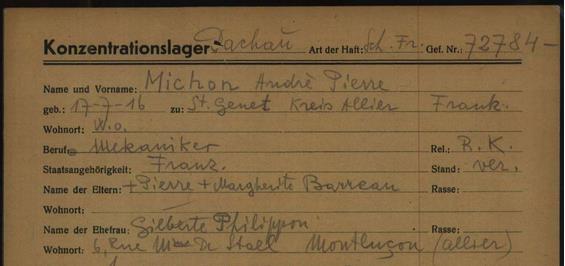 Konzentrationslager Dachau Art der Haft: Sch. Fr. Gef. Nr.: 72784
Name und Vorname: Michon André Pierre
geb.: 17-7-16 zu: St. Genet Kreis Allier Frank.
Wohnort: w.o.
Beruf: Mekaniker Rel.: R. K.
Staatsangehörigkeit: Franz. Stand: ver.
Name der Eltern: + Pierre + Margherite Barreau Rasse:
Wohnort:
Name der Ehefrau: Gilberte Philippon Rasse:
Wohnort: 6, Rue Mme De Stael Montluçon (allier)